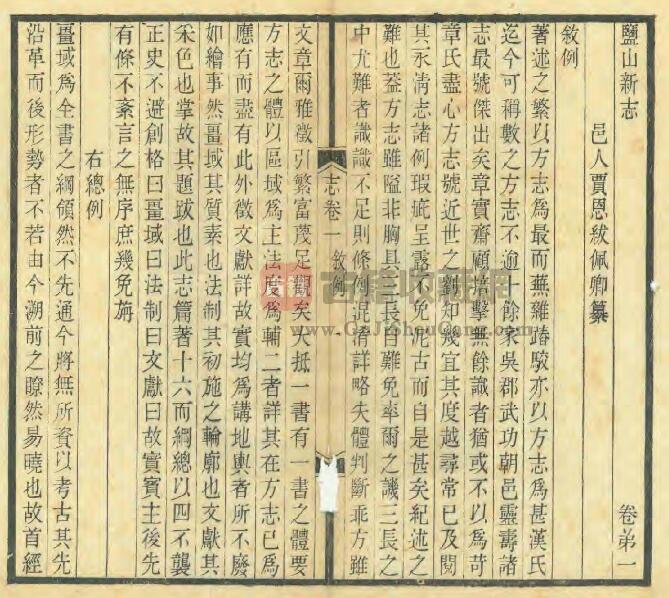 鹽山新志 卷弟一
邑人賈恩紱佩卿纂
敘例
著述之繁以方志爲最而蕪雜踳駮亦以方志爲甚漢氏
迄今可稱數之方志不逾十餘家吳郡武功朝邑靈壽諸
志最號傑出矣章實齋顧掊擊無餘識者猶或不以爲苛
章氏盡心方志號近世之劉知幾宜其度越尋常已及閱
其永清志諸例瑕疵呈露不免泥古而自是甚矣紀述之
難也葢方志雖隘非胸具三長自難免率爾之譏三長之
中尤難者識識不足則條例混淆詳略失體判斷乖方雖
志卷一 敘例 一
文章爾雅徵引繁富蔑足觀矣大抵一書有一書之體要
方志之體以區域爲主法度爲輔二者詳其在方志已爲
應有而盡有此外徵文獻詳故實均爲講地輿者所不廢
如繪事然畺域其質素也法制其初施之輪廓也文獻其
采色也掌故其題跋也此志篇著十六而綱總以四不襲
正史不避創格曰畺域曰法制曰文獻曰故實賓主後先
有條不紊言之無序庶幾免旃
右總例
畺域爲全書之綱領然不先通今將無所資以考古其先
沿革而後形勢者不若由今溯前之瞭然易曉也故首經